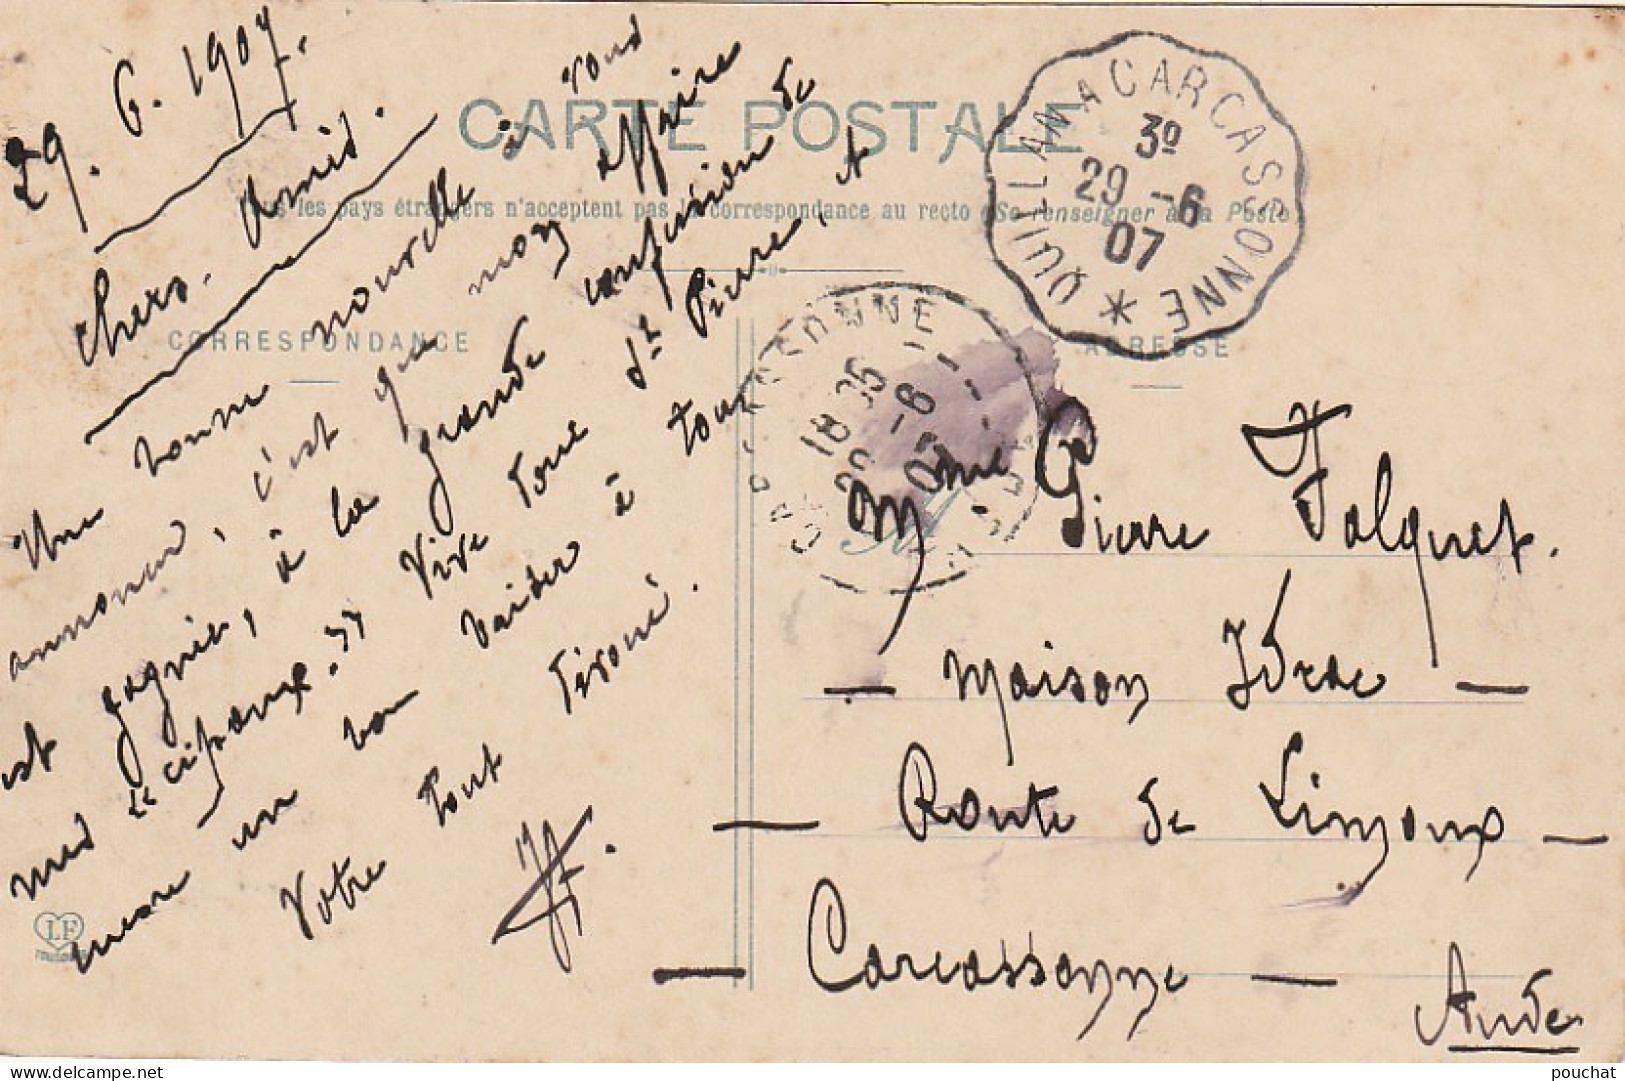 29. 6. 1907.
Chers. Amis.
Une bonne nouvelle à vous
annoncer, c'est que mon affaire
est gagnée, à la grande confusion de
mes "cipaux." Vive donc St Pierre, et
encore un bon baiser à tous
Votre tout dévoué.
CARTE POSTALE
Tous les pays étrangers n'acceptent pas la correspondance au recto (Se renseigner à la Poste
CORRESPONDANCE
ADRESSE
QUILLAN A CARCASSONNE *
3º
29 -6
07
CARCASSONNE
18 35
29 -6
07
AUDE
M
Mme Pierre Falquet.
— Maison Idrac —
— Route de Limoux —
— Carcassonne —
Aude
LF
TOULOUSE
pouchat